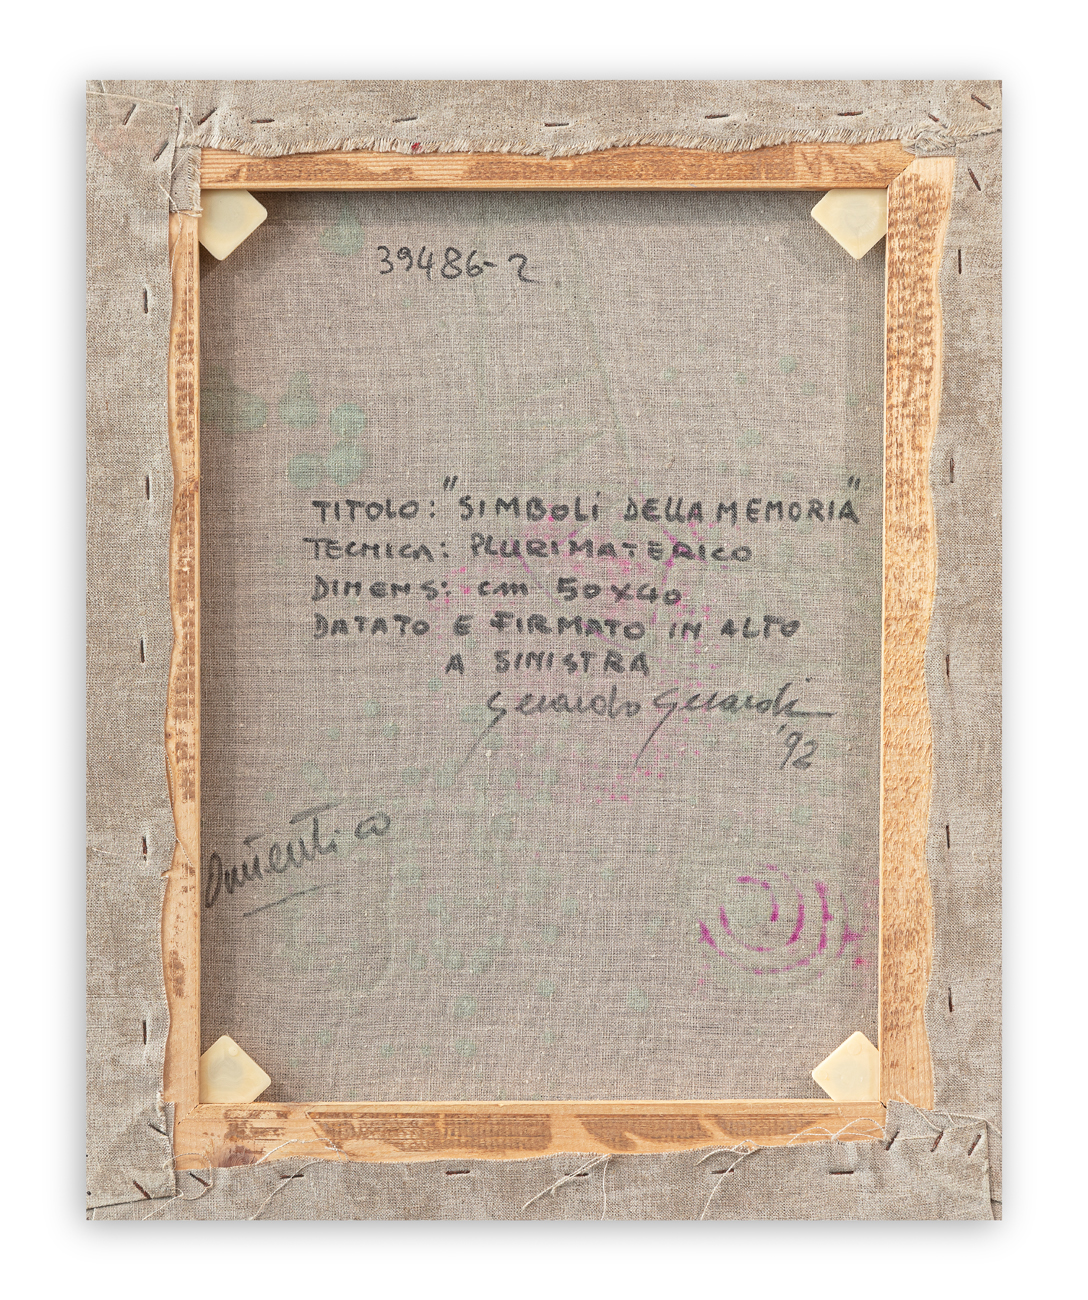 39486-2
TITOLO: "SIMBOLi DELLA MEMORIA"
TECNICA: PLURIMATERICO
DIMENS: cm 50X40
DATATO E FIRMATO IN ALTO
A SINISTRA
Gerardo Gerardi
'92